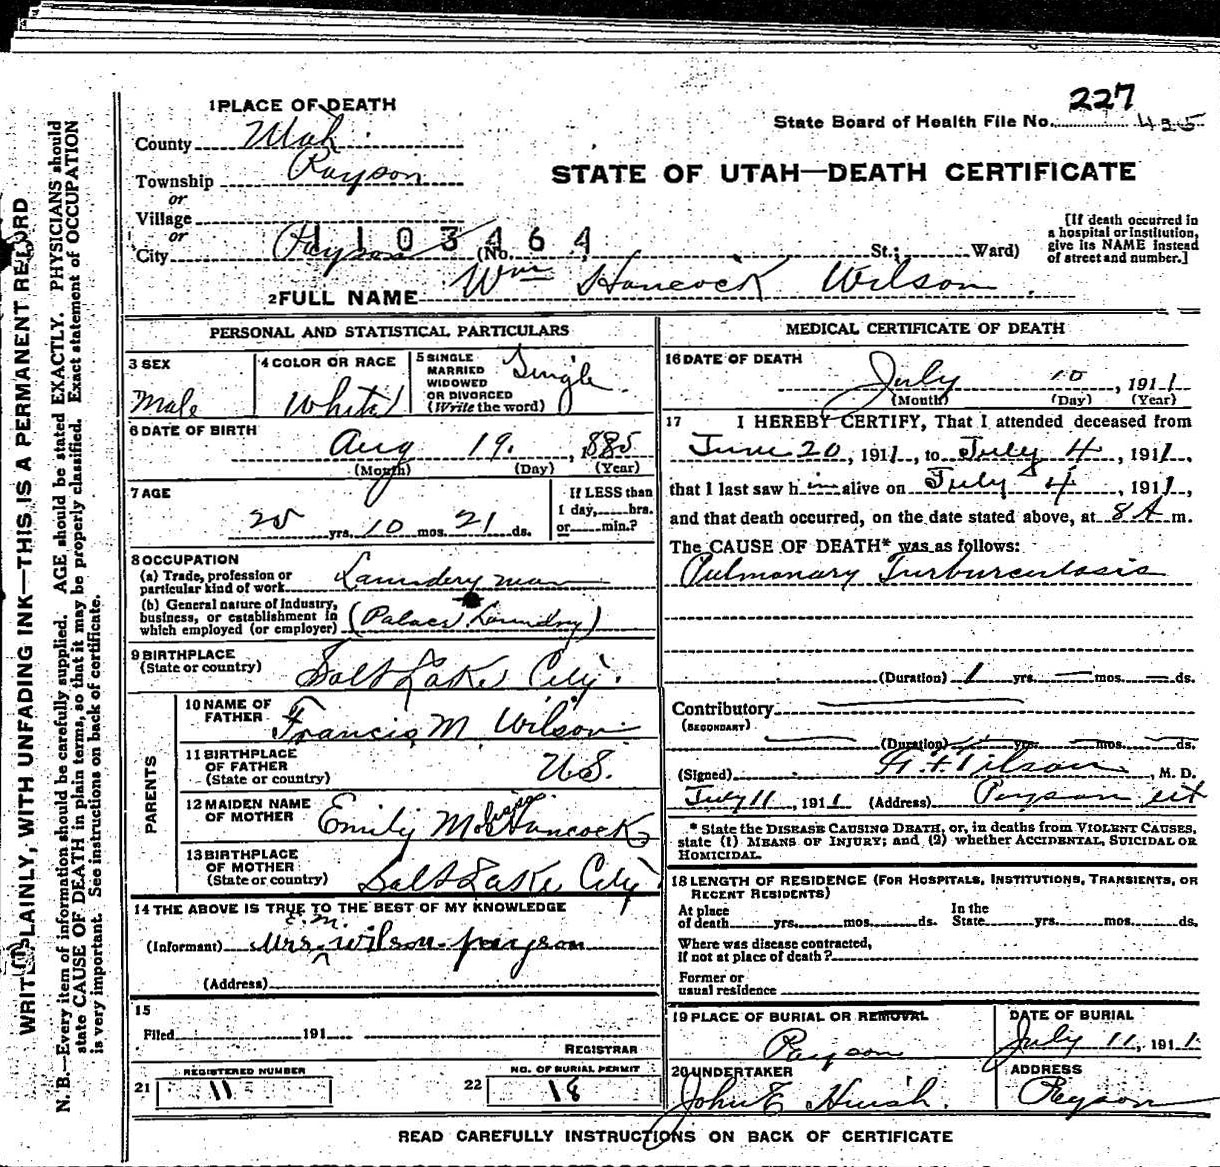 227
State Board of Health File No. 425
1 PLACE OF DEATH
County Utah
STATE OF UTAH—DEATH CERTIFICATE
Township Payson
or
Village
or
City Payson (No. St.; Ward)
1103464
[If death occurred in
a hospital or institution,
give its NAME instead
of street and number.]
2 FULL NAME Wm Hancock Wilson
PERSONAL AND STATISTICAL PARTICULARS
3 SEX
Male
4 COLOR OR RACE
White
5 SINGLE
MARRIED
WIDOWED
OR DIVORCED
(Write the word)
Single
6 DATE OF BIRTH
Aug 19, 1885
(Month) (Day) (Year)
7 AGE
25 yrs. 10 mos. 21 ds.
If LESS than
1 day, hrs.
or min.?
8 OCCUPATION
(a) Trade, profession or
particular kind of work Laundery man
(b) General nature of industry,
business, or establishment in
which employed (or employer) (Palace Laundry)
9 BIRTHPLACE
(State or country) Salt Lake City.
PARENTS
10 NAME OF
FATHER Francis M Wilson
11 BIRTHPLACE
OF FATHER
(State or country) U.S.
12 MAIDEN NAME
OF MOTHER Emily Hancock
13 BIRTHPLACE
OF MOTHER
(State or country) Salt Lake City
14 THE ABOVE IS TRUE TO THE BEST OF MY KNOWLEDGE
E. M.
(Informant) Mrs. ^ Wilson payson
(Address)
15
Filed 191
REGISTRAR
21 REGISTERED NUMBER
11
22 NO. OF BURIAL PERMIT
18
MEDICAL CERTIFICATE OF DEATH
16 DATE OF DEATH
July 10, 1911
(Month) (Day) (Year)
17 I HEREBY CERTIFY, That I attended deceased from
June 20, 1911, to July 4, 1911,
that I last saw him alive on July 4, 1911,
and that death occurred, on the date stated above, at 8 A m.
The CAUSE OF DEATH* was as follows:
Pulmonary Turburculosis
(Duration) 1 yrs. — mos. — ds.
Contributory
(SECONDARY)
(Duration) — yrs. — mos. — ds.
(Signed) Tilson, M. D.
July 11, 1911 (Address) Payson Ut
* State the DISEASE CAUSING DEATH, or, in deaths from VIOLENT CAUSES,
state (1) MEANS OF INJURY; and (2) whether ACCIDENTAL, SUICIDAL OR
HOMICIDAL.
18 LENGTH OF RESIDENCE (FOR HOSPITALS, INSTITUTIONS, TRANSIENTS, OR
RECENT RESIDENTS)
At place
of death yrs. mos. ds.
In the
State yrs. mos. ds.
Where was disease contracted,
if not at place of death?
Former or
usual residence
19 PLACE OF BURIAL OR REMOVAL
Payson
DATE OF BURIAL
July 11, 1911
20 UNDERTAKER
John E Huish.
ADDRESS
Payson
READ CAREFULLY INSTRUCTIONS ON BACK OF CERTIFICATE
WRITE PLAINLY, WITH UNFADING INK—THIS IS A PERMANENT RECORD
N. B.—Every item of information should be carefully supplied. AGE should be stated EXACTLY. PHYSICIANS should
state CAUSE OF DEATH in plain terms, so that it may be properly classified. Exact statement of OCCUPATION
is very important. See instructions on back of certificate.